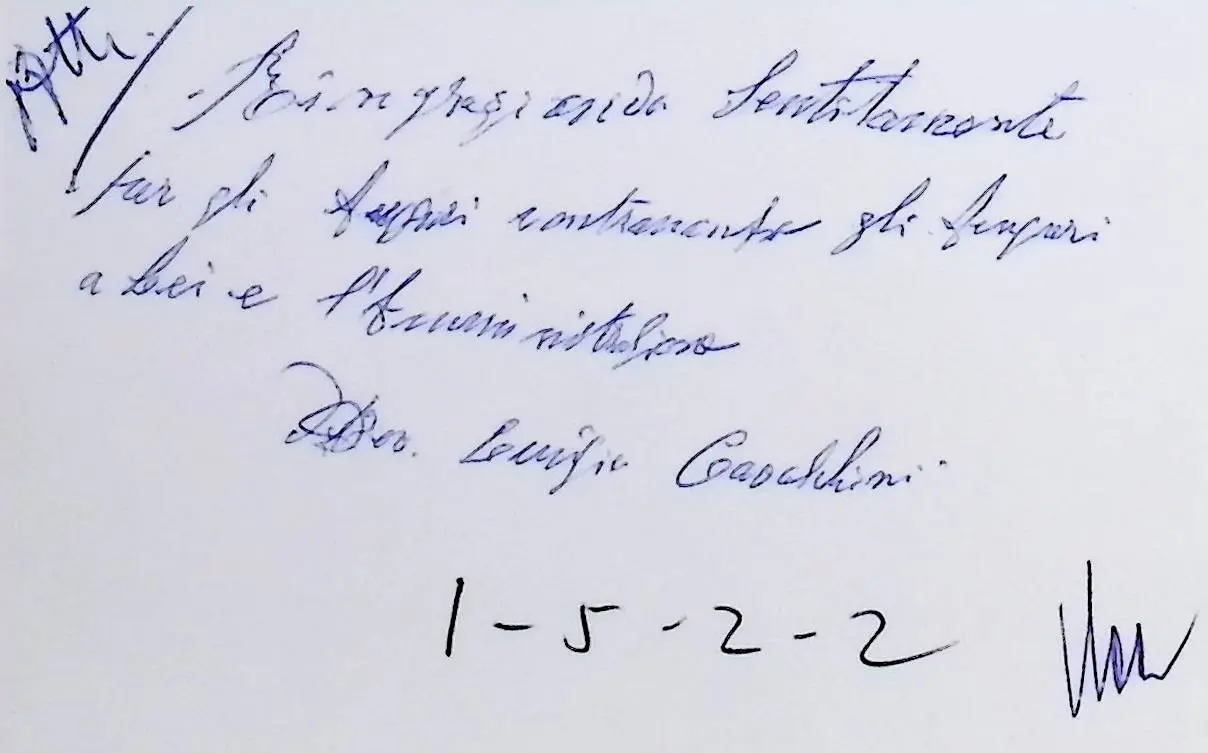 Atti
Ringraziando Sentitamente
per gli Auguri contraccambio gli Auguri
a Lei e l'Amministrazione
Luigi
1-5-2-2